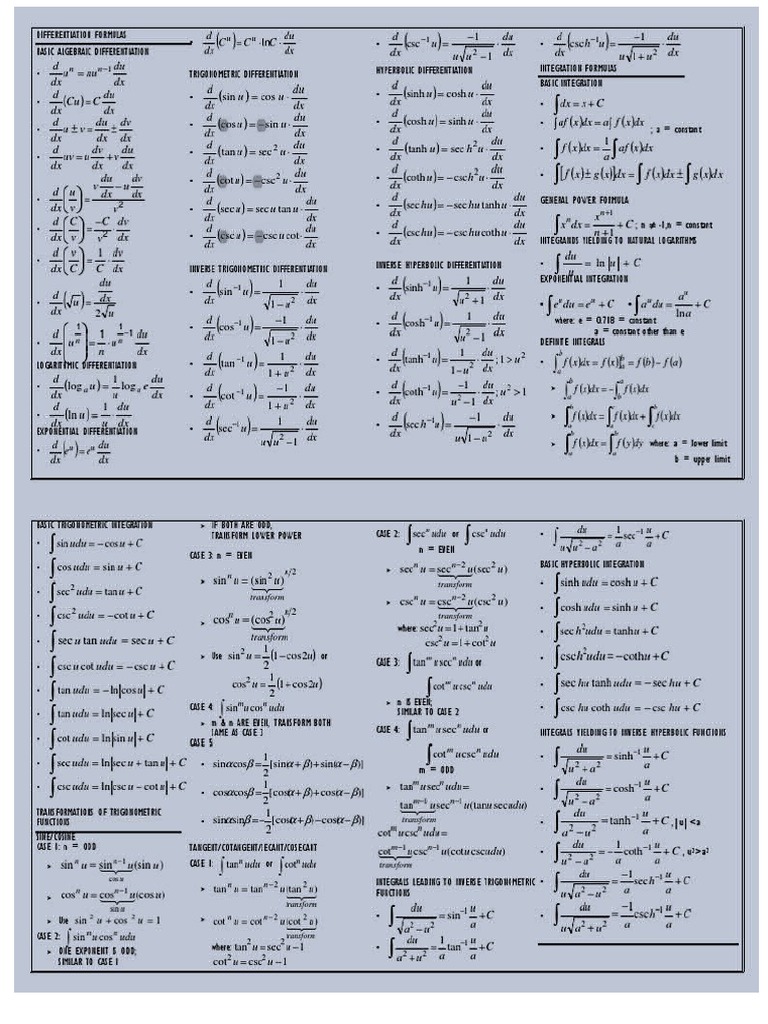 DIFFERENTIATION FORMULAS
BASIC ALGEBRAIC DIFFERENTIATION
• d/dx u^n = nu^(n−1) du/dx
• d/dx (Cu) = C du/dx
• d/dx u ± v = du/dx ± dv/dx
• d/dx uv = u dv/dx + v du/dx
• d/dx (u/v) = (v du/dx − u dv/dx)/v^2
• d/dx (C/v) = −C/v^2 · dv/dx
• d/dx (v/C) = 1/C · dv/dx
• d/dx (√u) = (du/dx)/(2√u)
• d/dx (u^(1/n)) = 1/n · u^(1/n −1) du/dx
LOGARITHMIC DIFFERENTIATION
• d/dx (log_a u) = 1/u log_a e du/dx
• d/dx (ln u) = 1/u · du/dx
EXPONENTIAL DIFFERENTIATION
• d/dx (e^u) = e^u du/dx
• d/dx (C^u) = C^u · lnC du/dx
TRIGONOMETRIC DIFFERENTIATION
• d/dx (sin u) = cos u · du/dx
• d/dx (cos u) = −sin u · du/dx
• d/dx (tan u) = sec^2 u · du/dx
• d/dx (cot u) = −csc^2 u · du/dx
• d/dx (sec u) = sec u tan u · du/dx
• d/dx (csc u) = −csc u cot · du/dx
INVERSE TRIGONOMETRIC DIFFERENTIATION
• d/dx (sin^−1 u) = 1/√(1−u^2) · du/dx
• d/dx (cos^−1 u) = −1/√(1−u^2) · du/dx
• d/dx (tan^−1 u) = 1/(1+u^2) · du/dx
• d/dx (cot^−1 u) = −1/(1+u^2) · du/dx
• d/dx (sec^−1 u) = 1/(u√(u^2−1)) · du/dx
• d/dx (csc^−1 u) = −1/(u√(u^2−1)) · du/dx
HYPERBOLIC DIFFERENTIATION
• d/dx (sinh u) = cosh u · du/dx
• d/dx (cosh u) = sinh u · du/dx
• d/dx (tanh u) = sec h^2 u · du/dx
• d/dx (coth u) = −csch^2 u · du/dx
• d/dx (sec hu) = −sec hu tanh u · du/dx
• d/dx (csc hu) = −csc hu coth u · du/dx
INVERSE HYPERBOLIC DIFFERENTIATION
• d/dx (sinh^−1 u) = 1/√(u^2+1) · du/dx
• d/dx (cosh^−1 u) = 1/√(u^2−1) · du/dx
• d/dx (tanh^−1 u) = 1/(1−u^2) · du/dx ; 1 > u^2
• d/dx (coth^−1 u) = −1/(u^2−1) · du/dx ; u^2 > 1
• d/dx (sec h^−1 u) = −1/(u√(1−u^2)) · du/dx
• d/dx (csc h^−1 u) = −1/(u√(1+u^2)) · du/dx
INTEGRATION FORMULAS
BASIC INTEGRATION
• ∫dx = x + C
• ∫af(x)dx = a∫f(x)dx ; a = constant
• ∫f(x)dx = 1/a ∫af(x)dx
• ∫[f(x) ± g(x)]dx = ∫f(x)dx ± ∫g(x)dx
GENERAL POWER FORMULA
• ∫x^n dx = x^(n+1)/(n+1) + C ; n ≠ -1,n = constant
INTEGRANDS YIELDING TO NATURAL LOGARITHMS
• ∫du/u = ln|u| + C
EXPONENTIAL INTEGRATION
• ∫e^u du = e^u + C • ∫a^u du = a^u/ln a + C
where: e = 0.718 = constant
a = constant other than e
DEFINITE INTEGRALS
• ∫_a^b f(x)dx = f(x)]_a^b = f(b) − f(a)
➢ ∫_a^b f(x)dx = −∫_b^a f(x)dx
➢ ∫_a^b f(x)dx = ∫_a^c f(x)dx + ∫_c^b f(x)dx
➢ ∫_a^b f(x)dx = ∫_a^b f(y)dy where: a = lower limit
b = upper limit
BASIC TRIGONOMETRIC INTEGRATION
• ∫sin udu = −cos u + C
• ∫cos udu = sin u + C
• ∫sec^2 udu = tan u + C
• ∫csc^2 udu = −cot u + C
• ∫sec u tan udu = sec u + C
• ∫csc u cot udu = −csc u + C
• ∫tan udu = −ln|cos u| + C
• ∫tan udu = ln|sec u| + C
• ∫cot udu = ln|sin u| + C
• ∫sec udu = ln|sec u + tan u| + C
• ∫csc udu = ln|csc u − cot u| + C
TRANSFORMATIONS OF TRIGONOMETRIC
FUNCTIONS
SINE/COSINE
CASE 1: n = ODD
➢ sin^n u = sin^(n−1) u(sin u)
cos u
➢ cos^n u = cos^(n−1) u(cos u)
sin u
➢ Use sin^2 u + cos^2 u = 1
CASE 2: ∫sin^m u cos^n udu
➢ ONE EXPONENT IS ODD;
SIMILAR TO CASE 1
➢ IF BOTH ARE ODD,
TRANSFORM LOWER POWER
CASE 3: n = EVEN
➢ sin^n u = (sin^2 u)^(n/2)
transform
➢ cos^n u = (cos^2 u)^(n/2)
transform
➢ Use sin^2 u = 1/2 (1−cos2u) or
cos^2 u = 1/2 (1+cos2u)
CASE 4: ∫sin^m u cos^n udu
➢ m & n ARE EVEN, TRANSFORM BOTH
SAME AS CASE 3
CASE 5
• sinαcosβ = 1/2 [sin(α+β)+sin(α−β)]
• cosαcosβ = 1/2 [cos(α+β)+cos(α−β)]
• sinαsinβ = −1/2 [cos(α+β)−cos(α−β)]
TANGENT/COTANGENT/SECANT/COSECANT
CASE 1: ∫tan^n udu or ∫cot^n udu
➢ tan^n u = tan^(n−2) u(tan^2 u)
transform
➢ cot^n u = cot^(n−2) u(cot^2 u)
transform
where: tan^2 u = sec^2 u − 1
cot^2 u = csc^2 u − 1
CASE 2: ∫sec^n udu or ∫csc^n udu
n = EVEN
➢ sec^n u = sec^(n−2) u(sec^2 u)
transform
➢ csc^n u = csc^(n−2) u(csc^2 u)
transform
where: sec^2 u = 1+tan^2 u
csc^2 u = 1+cot^2 u
CASE 3: ∫tan^m u sec^n udu or
∫cot^m u csc^n udu
➢ n IS EVEN;
SIMILAR TO CASE 2
CASE 4: ∫tan^m u sec^n udu or
∫cot^m u csc^n udu
m = ODD
➢ tan^m u sec^n udu =
tan^(m−1) u sec^(n−1) u(tan u sec udu)
transform
cot^m u csc^n udu =
cot^(m−1) u csc^(n−1) u(cot u csc udu)
transform
INTEGRALS LEADING TO INVERSE TRIGONOMETRIC
FUNCTIONS
• ∫du/√(a^2−u^2) = sin^−1 u/a + C
• ∫du/(a^2+u^2) = 1/a tan^−1 u/a + C
• ∫du/(u√(u^2−a^2)) = 1/a sec^−1 u/a + C
BASIC HYPERBOLIC INTEGRATION
• ∫sinh udu = cosh u + C
• ∫cosh udu = sinh u + C
• ∫sec h^2 udu = tanh u + C
• ∫csch^2 udu = −coth u + C
• ∫sec hu tanh udu = −sec hu + C
• ∫csc hu coth udu = −csc hu + C
INTEGRALS YIELDING TO INVERSE HYPERBOLIC FUNCTIONS
• ∫du/√(u^2+a^2) = sinh^−1 u/a + C
• ∫du/√(u^2−a^2) = cosh^−1 u/a + C
• ∫du/(a^2−u^2) = tanh^−1 u/a + C ,|u| <a
• ∫du/(u^2−a^2) = −coth^−1 u/a + C , u²>a²
• ∫du/(u√(a^2−u^2)) = −1/a sech^−1 u/a + C
• ∫du/(u√(a^2+u^2)) = −1/a csch^−1 u/a + C